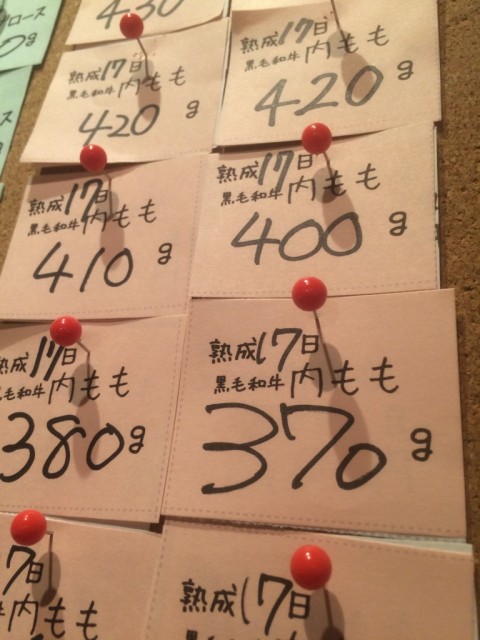 ロース
g
ス
430
熟成17日
黒毛和牛内もも
420g
熟成17日
黒毛和牛内もも
420g
熟成17日
黒毛和牛内もも
410g
熟成17日
黒毛和牛内もも
400g
熟成17日
黒毛和牛内もも
380g
熟成17日
黒毛和牛内もも
370g
7日
牛内もも
熟成17日
黒毛和牛内もも